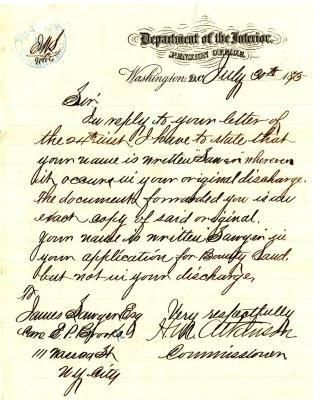 Department of the Interior,
PENSION OFFICE,
Washington, D.C. July 30th 1875
Sir:
In reply to your letter of
the 24th inst I have to state that
your name is written "Sawin" wherever
it occurs in your original discharge.
The document forwarded you is an
exact copy of said original.
Your name is written "Sawyer" in
your application for Bounty Land,
but not in your discharge,
Very respectfully
Commissioner
To
James Sawyer Esq
Care E. P. Brooks
111 Nassau St
N.Y. City